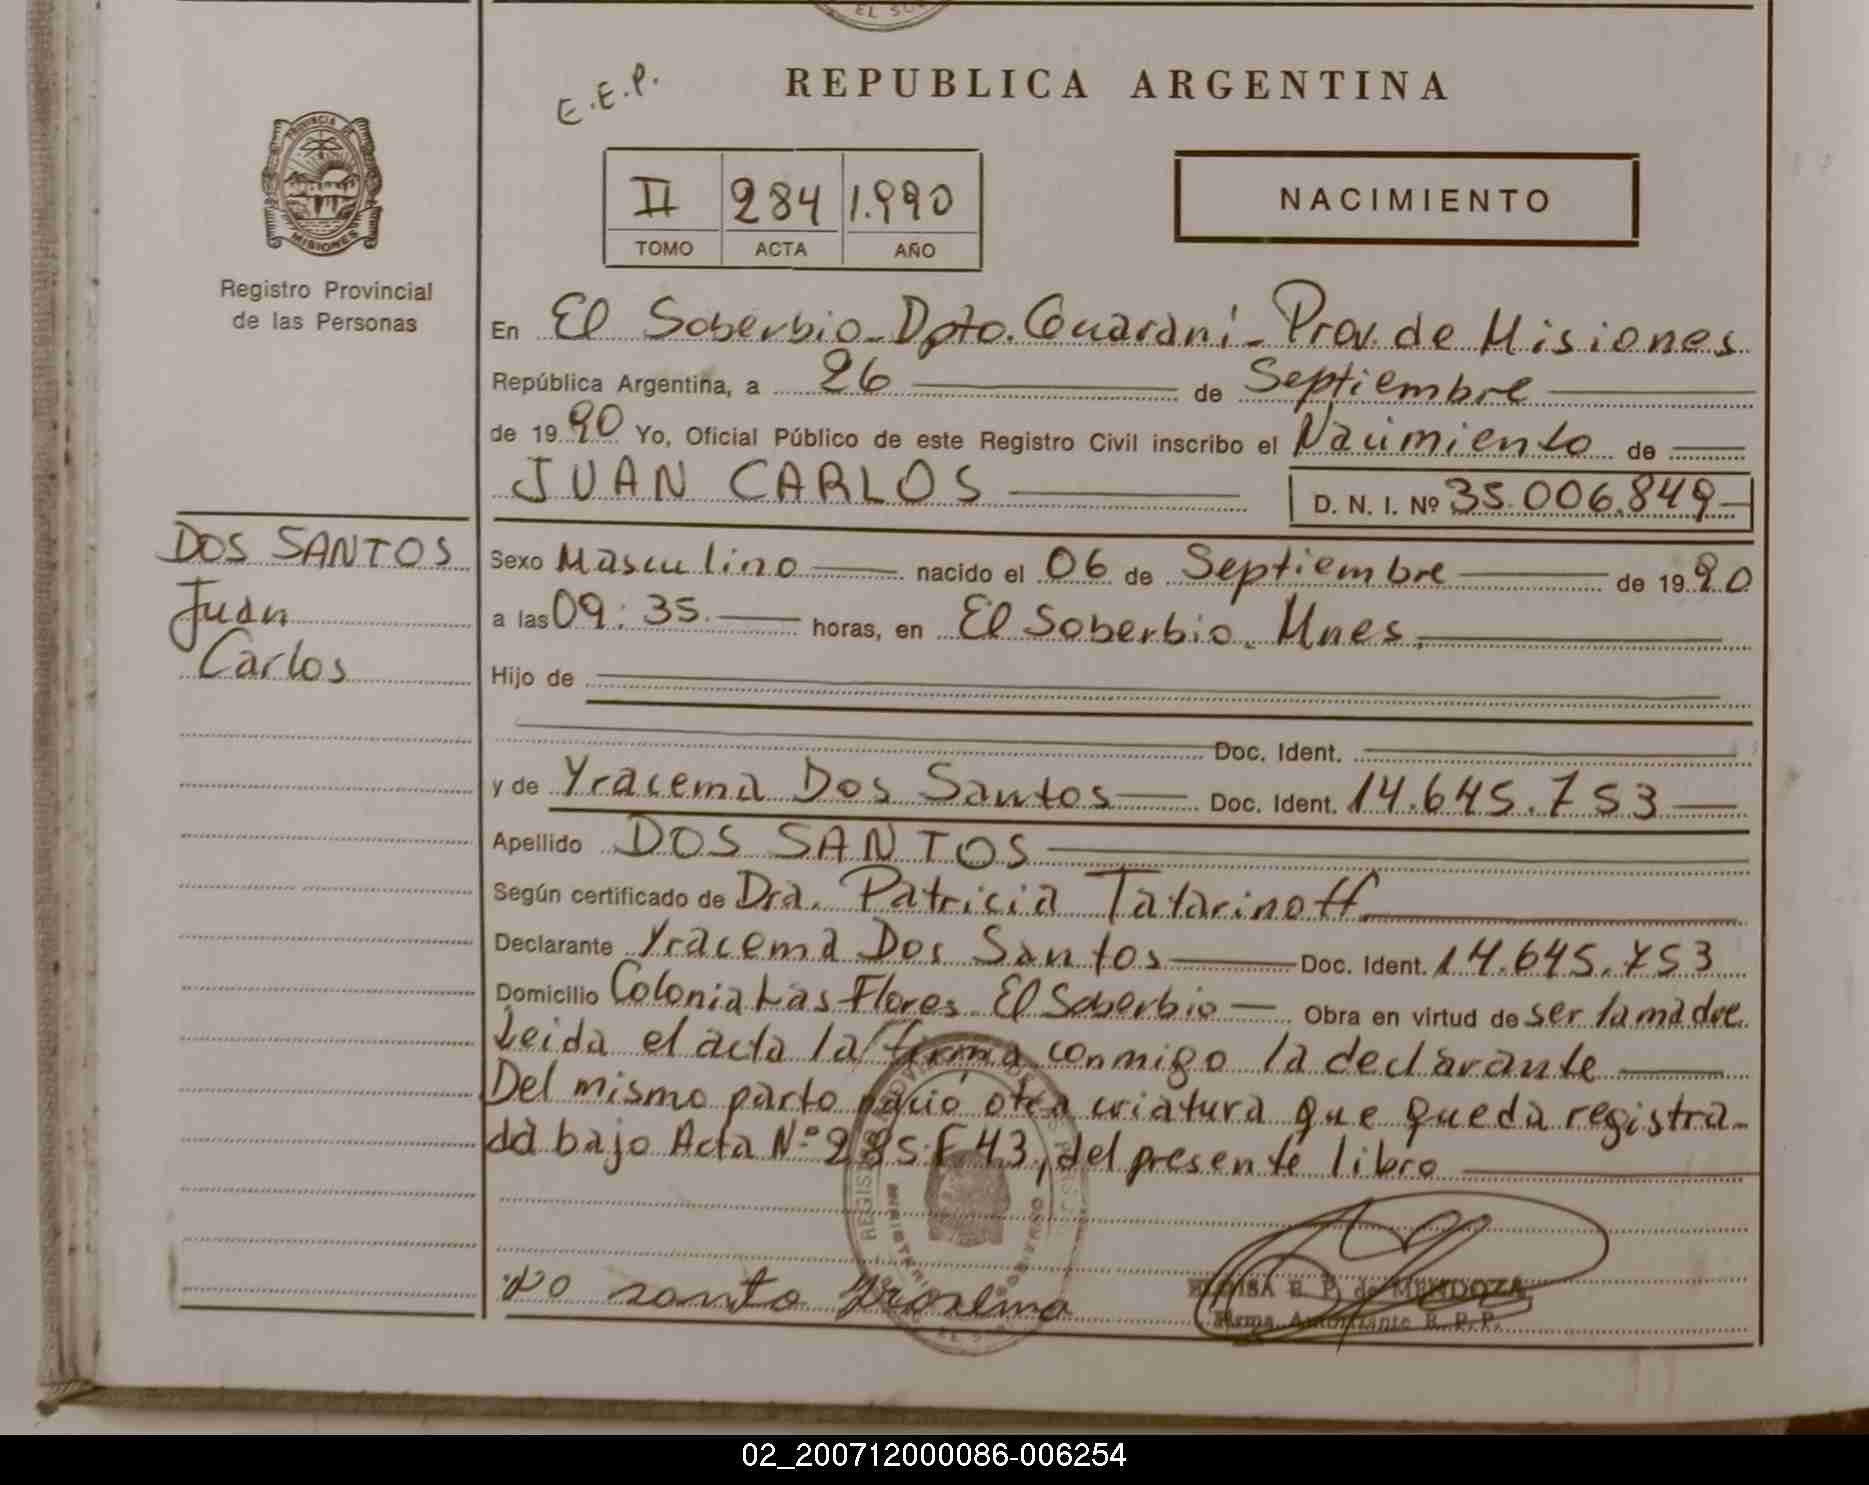 EL SO
REPUBLICA ARGENTINA
E.E.P.
PROVINCIA DE
MISIONES
Registro Provincial
de las Personas
II 284 1.990
TOMO ACTA AÑO
NACIMIENTO
En El Soberbio - Dpto. Guaraní - Prov. de Misiones
República Argentina, a 26 de Septiembre
de 1990 Yo, Oficial Público de este Registro Civil inscribo el Nacimiento de
JUAN CARLOS D. N. I. Nº 35.006.849
DOS SANTOS
Juan
Carlos
Sexo Masculino nacido el 06 de Septiembre de 1990
a las 09:35. horas, en El Soberbio. Mnes.
Hijo de
Doc. Ident.
y de Yracema Dos Santos Doc. Ident. 14.645.753
Apellido DOS SANTOS
Según certificado de Dra. Patricia Tatarinoff
Declarante Yracema Dos Santos Doc. Ident. 14.645.753
Domicilio Colonia Las Flores El Soberbio Obra en virtud de ser la madre
Leida el acta la firma conmigo la declarante
Del mismo parto nació otra criatura que queda registra-
da bajo Acta Nº 285 F 43, del presente libro
santo
E. P. de MENDOZA
Firma Autorizante R. P. P.
02_200712000086-006254